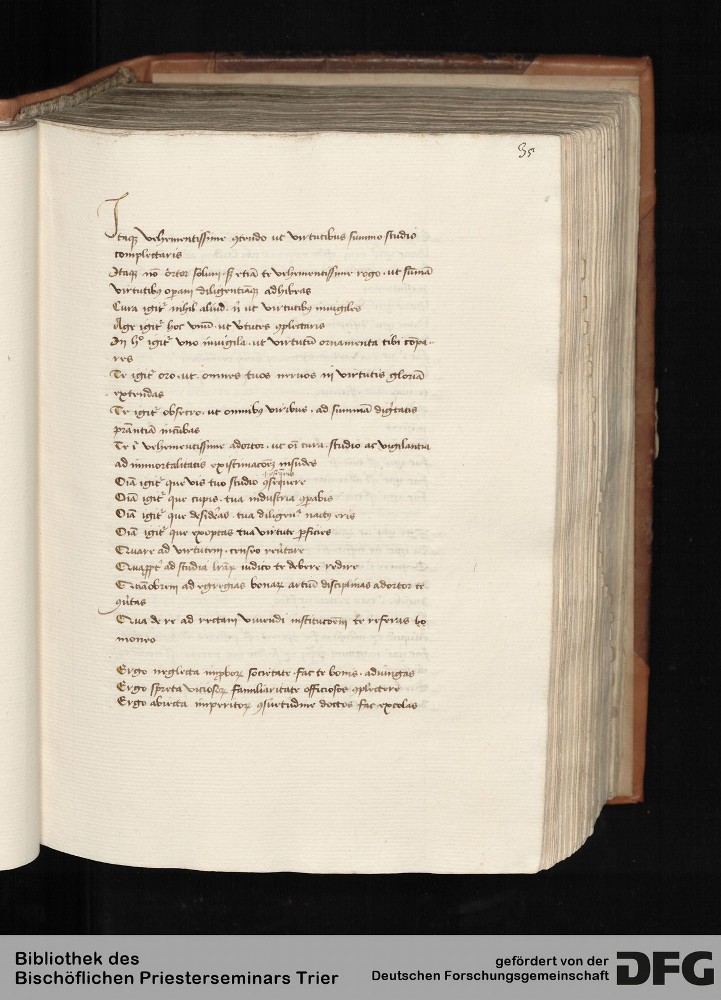 35
Itaq vehementissime ɔtendo ut virtutibus summo studio
complectaris
Itaq nō ortor solum · s etiā te vehementissime rogo · ut sūmā
virtutibꝯ operam diligentiāq adhibeas
Cura igit nihil aliud · ut virtutibꝯ invigiles
Age igit hoc unū · ut vtutes ɔplectaris
In hᵒ igit uno invigila · ut virtutū ornamenta tibi cōpa
res
Te igit oro · ut · omnes tuos nervos in virtutis gloriā
extendas
Te igit obsecro · ut omnibꝯ viribus · ad summā digtatis
prātiā incūbas
Te vehementissime adortor · ut oī cura · studio ac vigilantia
ad immortalitatis existimacoēz insudes
Oīa igit que vis tuo studio ɔsequere
Oīa igit que cupis · tua industria ɔpabis
Oīa igit que desideas · tua diligenᵃ nactꝯ eris
Oīa igit que exoptas tua virtute pficies
Quare ad virtutem · censeo revtare
Quappt ad studia lrāꝝ iudico te debere redire
Quāobrem ad egregias bonaꝝ artiū disciplinas adortor te
ɔvtas
Qua de re ad rectam vivendi institucōem te referas ho
moneo
Ergo neglecta improboꝝ societate · fac te bonis · adiungas
Ergo spreta viciosoꝝ familiaritate officiosos ɔplectere
Ergo abiecta imperitoꝝ ɔsuetudine doctos fac excolas
Bibliothek des
Bischöflichen Priesterseminars Trier
gefördert von der
Deutschen Forschungsgemeinschaft
DFG